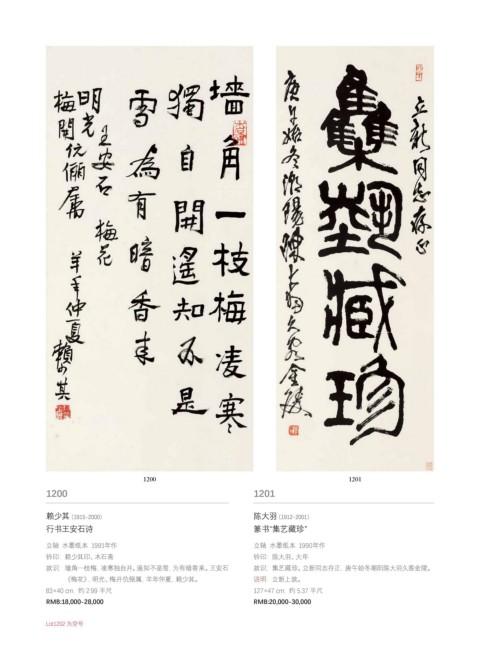 墙角一枝梅凌寒
獨自開遙知不是
雪為有暗香来
王安石 梅花
明光
梅開伉儷屬
羊年仲夏 賴少其
立新同志存正
集藝臧珍
庚午始冬潮陽陳大羽久客金陵
1200
1201
1200
赖少其 (1915-2000)
行书王安石诗
立轴 水墨纸本 1991年作
钤印: 赖少其印、木石斋
款识: 墙角一枝梅, 凌寒独自开。遥知不是雪, 为有暗香来。王安石
《梅花》, 明光、梅开伉俪属, 羊年仲夏, 赖少其。
83×40 cm 约 2.99 平尺
RMB:18,000-28,000
Lot1202 为空号
1201
陈大羽 (1912-2001)
篆书“集艺藏珍”
立轴 水墨纸本 1990年作
钤印: 陈大羽、大年
款识: 集艺藏珍。立新同志存正, 庚午始冬潮阳陈大羽久客金陵。
说明: 立新上款。
127×47 cm 约 5.37 平尺
RMB:20,000-30,000